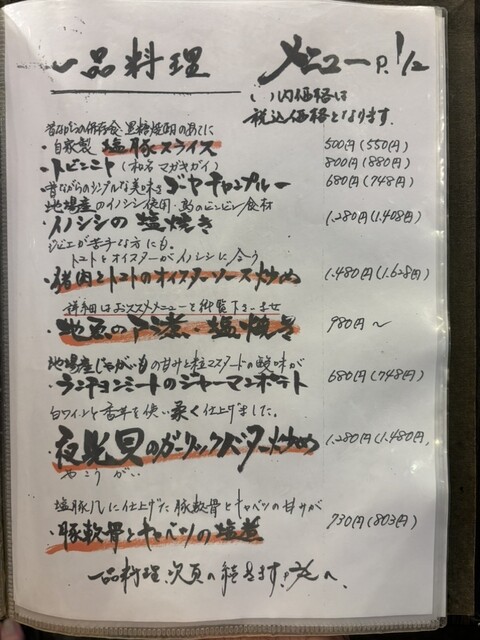 一品料理 メニューP.1/2
( )内価格は
税込価格となります。
昔ながらの保存食・黒糖焼酎のあてに
・自家製 塩豚スライス 500円(550円)
・トビンニャ(和名マガキガイ) 800円(880円)
昔ながらのシンプルな美味さ ゴーヤチャンプルー 680円(748円)
地場産のイノシシ使用・島のビンビン食材
・イノシシの塩焼き 1.280円(1.408円)
ジビエが苦手な方にも。
トマトとオイスターがイノシシに合う
・猪肉とトマトのオイスターソース炒め 1.480円(1.628円)
詳細はおススメメニューを御覧下さいませ
・地豆の下煮・塩焼き 980円〜
地場産じゃがいもの甘みと粒マスタードの酸味が
・ランチョンミートのジャーマンポテト 680円(748円)
白ワインと香草を使い柔く仕上げました。
・夜光貝のガーリックバター炒め 1.280円(1.480円)
やこうがい
塩豚風に仕上げた豚軟骨とキャベツの甘みが
・豚軟骨とキャベツの塩煮 730円(803円)
一品料理、次頁へ続きます。